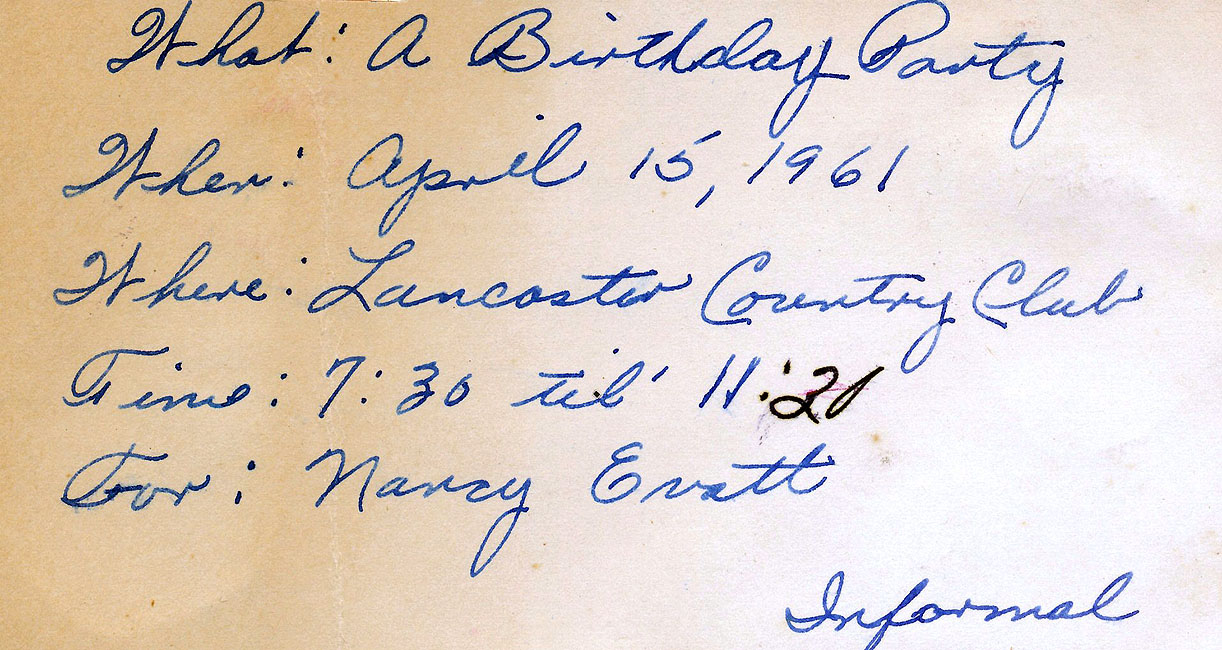 What: A Birthday Party
When: April 15, 1961
Where: Lancaster Country Club
Time: 7:30 til' 11:
For: Nancy Evatt
Informal